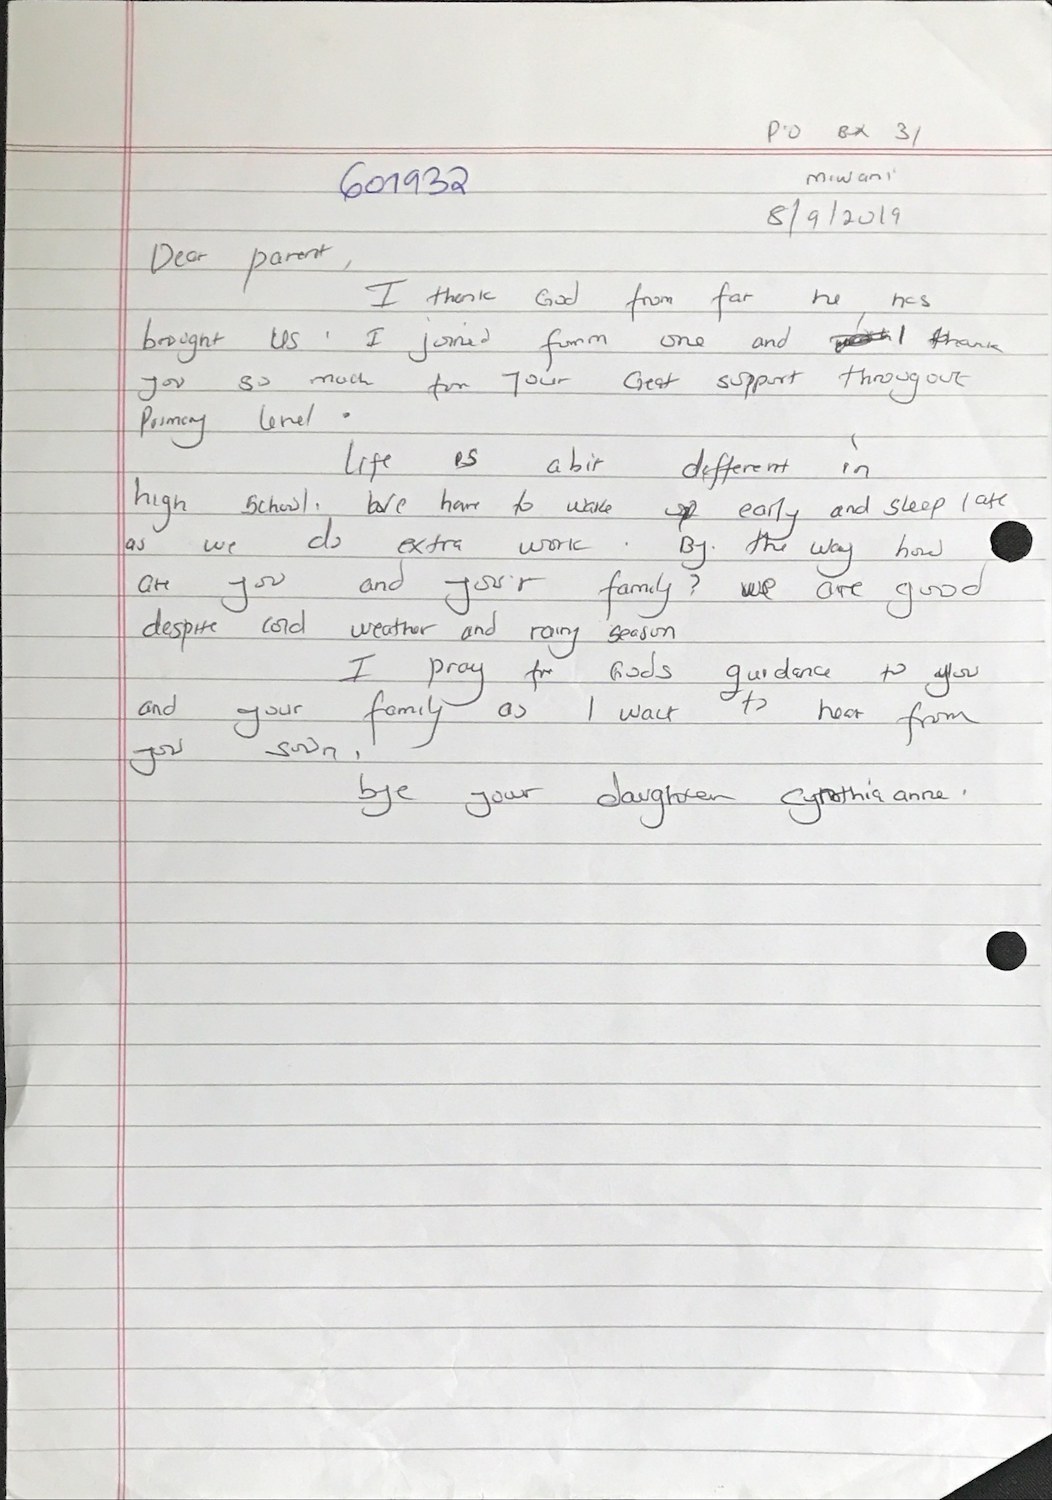 P.O BX 31
601932
Miwani
8/9/2019
Dear parent,
I thank God from far he has
brought us. I joined form one and I thank
you so much for your Great support througout
Primary level.
Life is abit different in
high school. We have to wake up early and sleep late
as we do extra work. By. the way how
are you and your family? we are good
despite cold weather and rainy season
I pray for Gods guidance to you
and your family as I wait to hear from
you soon.
bye your daughter Cynthia anne.